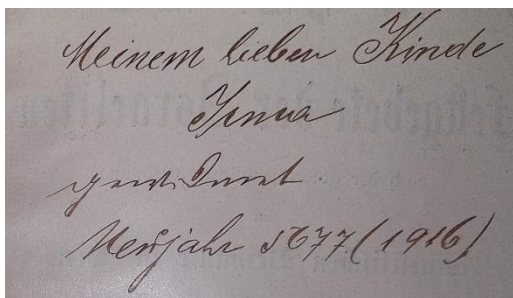 Meinem lieben Kinde
Irma
gewidmet
Neujahr 5677 (1916)